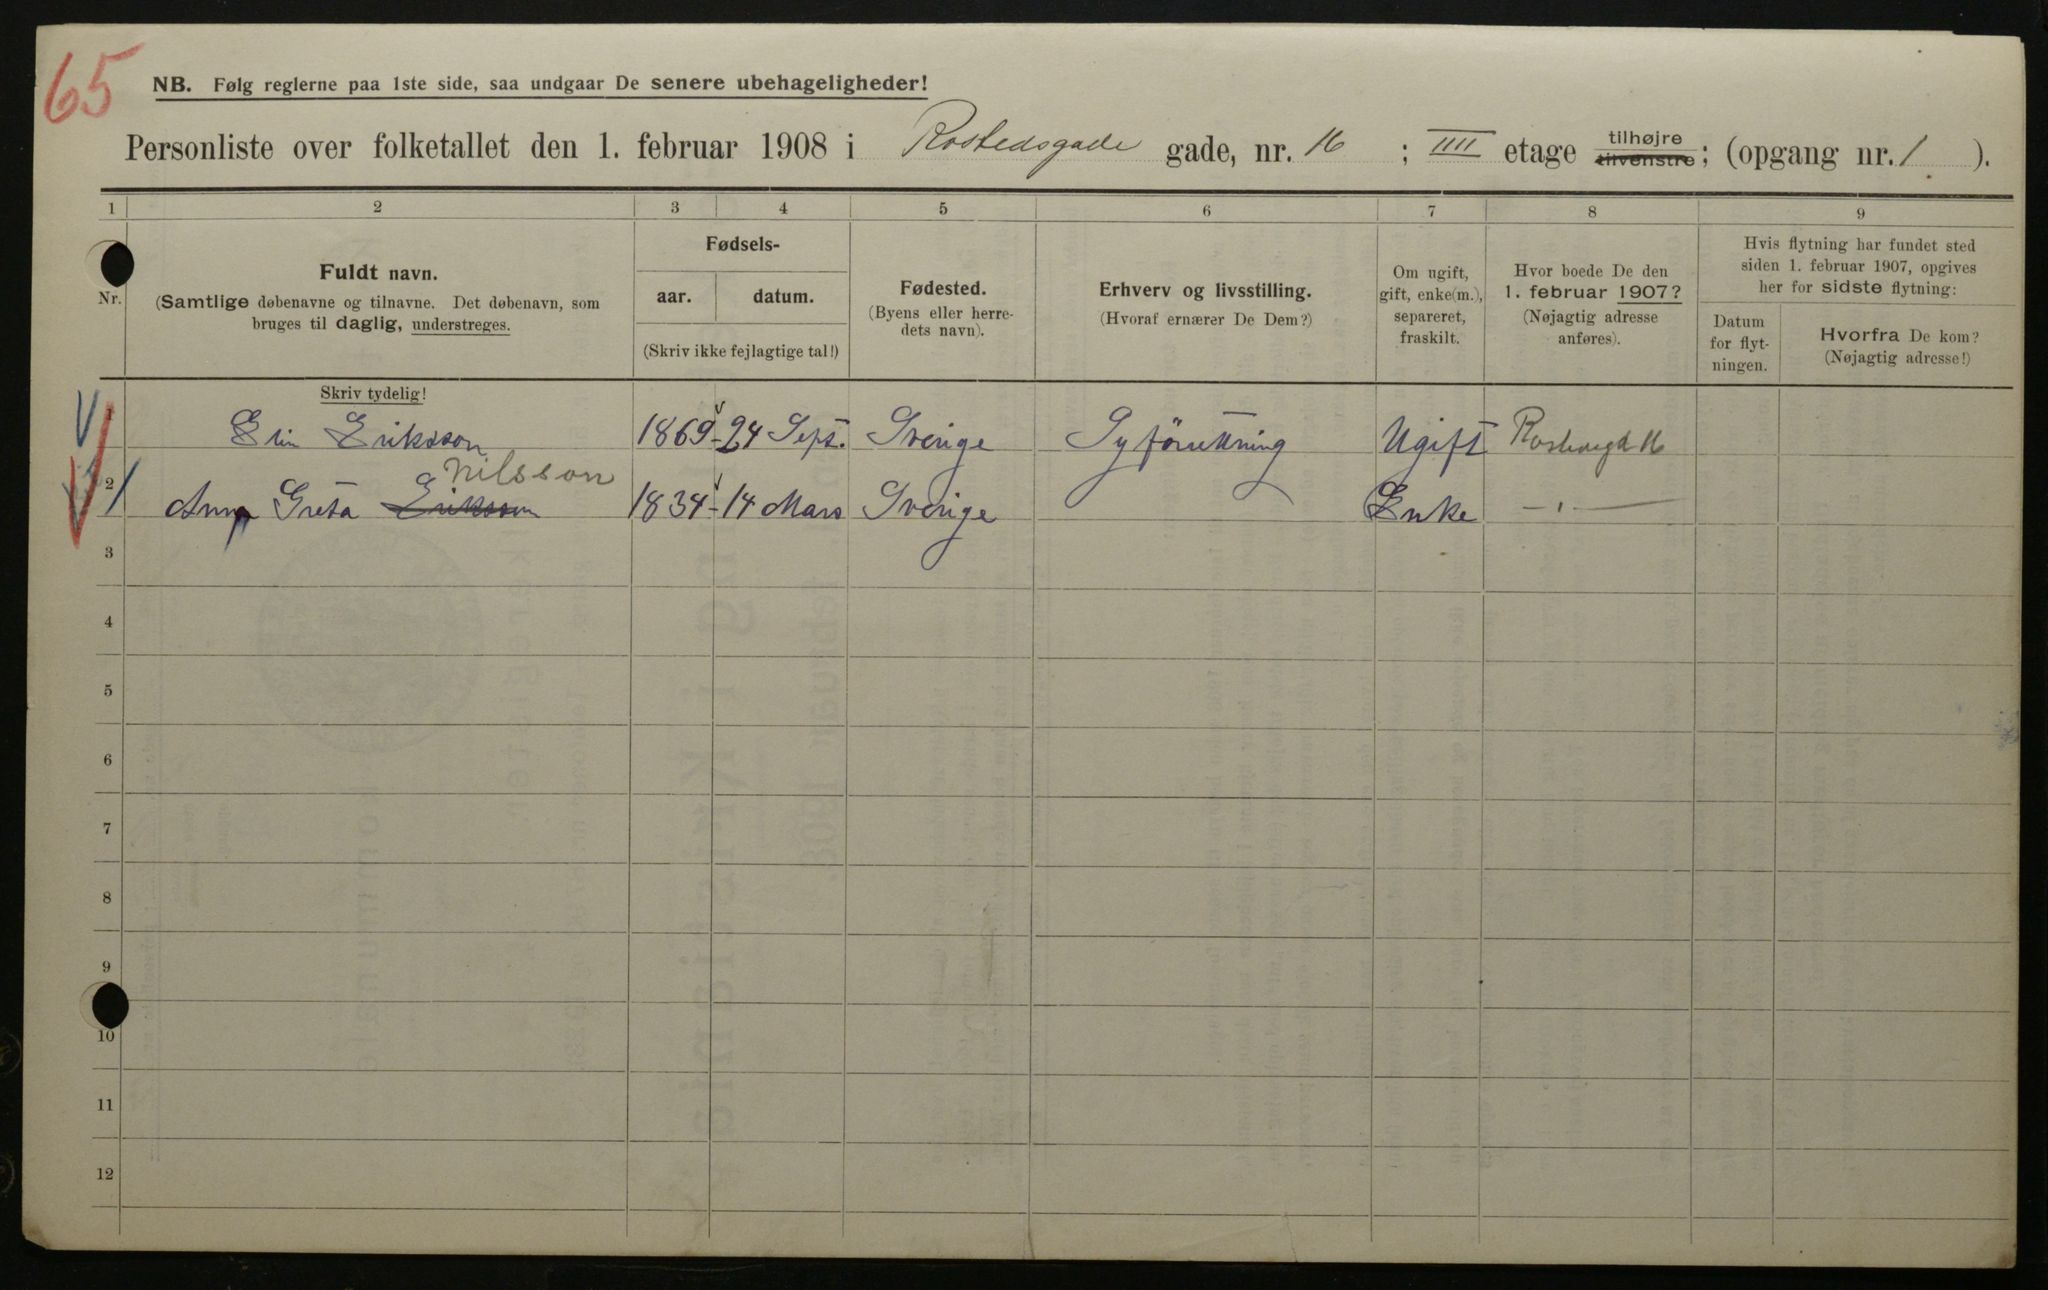 65
NB. Følg reglerne paa 1ste side, saa undgaar De senere ubehageligheder!
Personliste over folketallet den 1. februar 1908 i Rostedsgade gade, nr. 16 ; IIII etage tilhøjre tilvenstre ; (opgang nr. 1 ).
1 2 3 4 5 6 7 8 9
Nr.
Fuldt navn.
(Samtlige døbenavne og tilnavne. Det døbenavn, som
bruges til daglig, understreges.
Skriv tydelig!
Fødsels-
aar. datum.
(Skriv ikke fejlagtige tal!)
Fødested.
(Byens eller herre-
dets navn).
Erhverv og livsstilling.
(Hvoraf ernærer De Dem?)
Om ugift,
gift, enke(m.),
separeret,
fraskilt.
Hvor boede De den
1. februar 1907?
(Nøjagtig adresse
anføres).
Hvis flytning har fundet sted
siden 1. februar 1907, opgives
her for sidste flytning:
Datum
for flyt-
ningen.
Hvorfra De kom?
(Nøjagtig adresse!)
1 Elin Eriksson 1869 - 24 Sept. Sverige Syförrettning Ugift Rostedsgd 16
Nilsson
2 Anna Greta Eriksson 1834 - 14 Mars Sverige Enke — " —
3
4
5
6
7
8
9
10
11
12